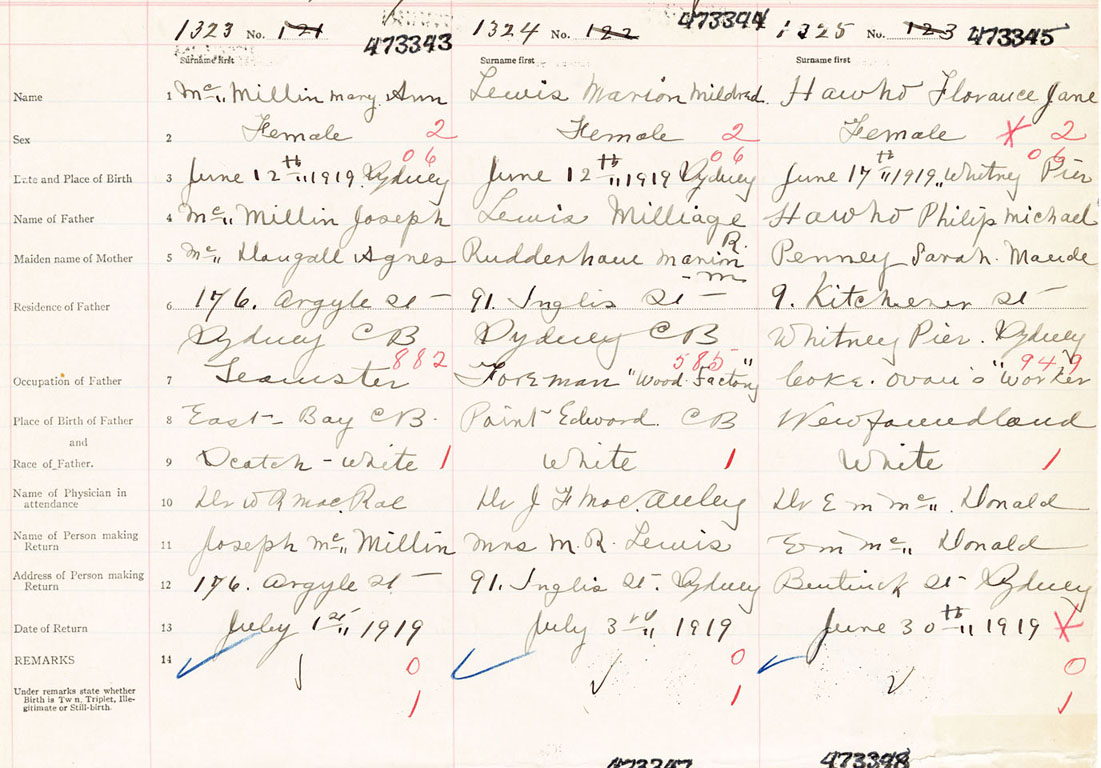 1323 No. 121 473343 1324 No. 122 473344 1325 No. 123 473345
Surname first Surname first Surname first
Name 1 Mc„ Millin Mary Ann Lewis Marion Mildred Hawko Florance Jane
Sex 2 Female 2 Female 2 Female X 2
06 06 06
Date and Place of Birth 3 June 12th„ 1919 Sydney June 12th„ 1919 Sydney June 17th„ 1919„ Whitney Pier
Name of Father 4 Mc„ Millin Joseph Lewis Milliage Hawko Philip Michael
R.
Maiden name of Mother 5 Mc„ Dougall Agnes Rudderham Marion Penney Sarah. Maude
- m
Residence of Father 6 176. Argyle St - 91. Inglis St - 9. Kitchener St -
Sydney CB Sydney CB Whitney Pier. Sydney
882 585 949
Occupation of Father 7 Teamster Foreman "Wood Factory" Coke. Ovan's "Worker
Place of Birth of Father 8 East - Bay CB. Point Edward. CB Newfoundland
and
Race of Father. 9 Scotch - White 1 White 1 White 1
Name of Physician in
attendance 10 Dr W R Mac. Rae Dr J F Mac. Auley Dr E M Mc„ Donald
Name of Person making
Return 11 Joseph Mc„ Millin Mrs M. R. Lewis E M Mc„ Donald
Address of Person making
Return 12 176. Argyle St - 91. Inglis St. Sydney Bentinck St - Sydney
Date of Return 13 July 1st„ 1919 July 3rd„ 1919 June 30th„ 1919 X
REMARKS 14 0 0 0
Under remarks state whether
Birth is Twin, Triplet, Ille-
gitimate or Still-birth. 1 1 1
473347 473348